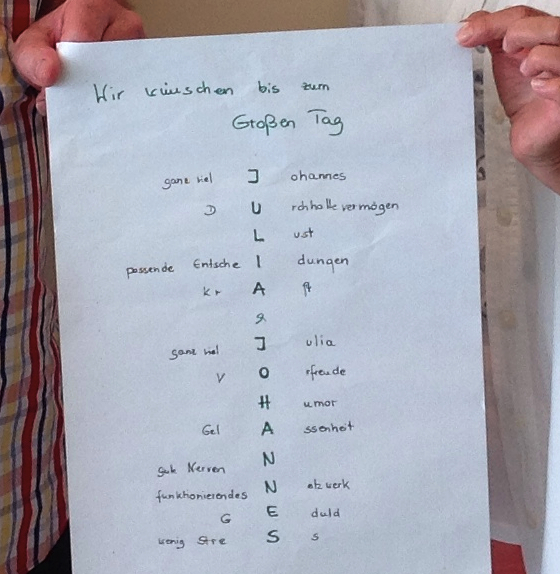 Wir wünschen bis zum
Großen Tag
ganz viel J ohannes
D U rchhaltevermögen
L ust
passende Entsche I dungen
kr A ft
&
ganz viel J ulia
V O rfreude
H umor
Gel A ssenheit
gute Nerven N
funktionierendes N etzwerk
G E duld
wenig Stre S s